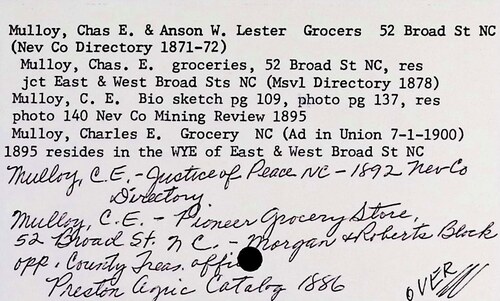 Mulloy, Chas E. & Anson W. Lester Grocers 52 Broad St NC
(Nev Co Directory 1871-72)
Mulloy, Chas. E. groceries, 52 Broad St NC, res
jct East & West Broad Sts NC (Msvl Directory 1878)
Mulloy, C. E. Bio sketch pg 109, photo pg 137, res
photo 140 Nev Co Mining Review 1895
Mulloy, Charles E. Grocery NC (Ad in Union 7-1-1900)
1895 resides in the WYE of East & West Broad St NC
Mulloy, C.E. - Justice of Peace NC - 1892 Nev Co
Directory.
Mulloy, C.E. - Pioneer Grocery Store,
52 Broad St. N C. - Morgan & Roberts Block
opp. County Treas. office
Preston Agric Catalog 1886
OVER